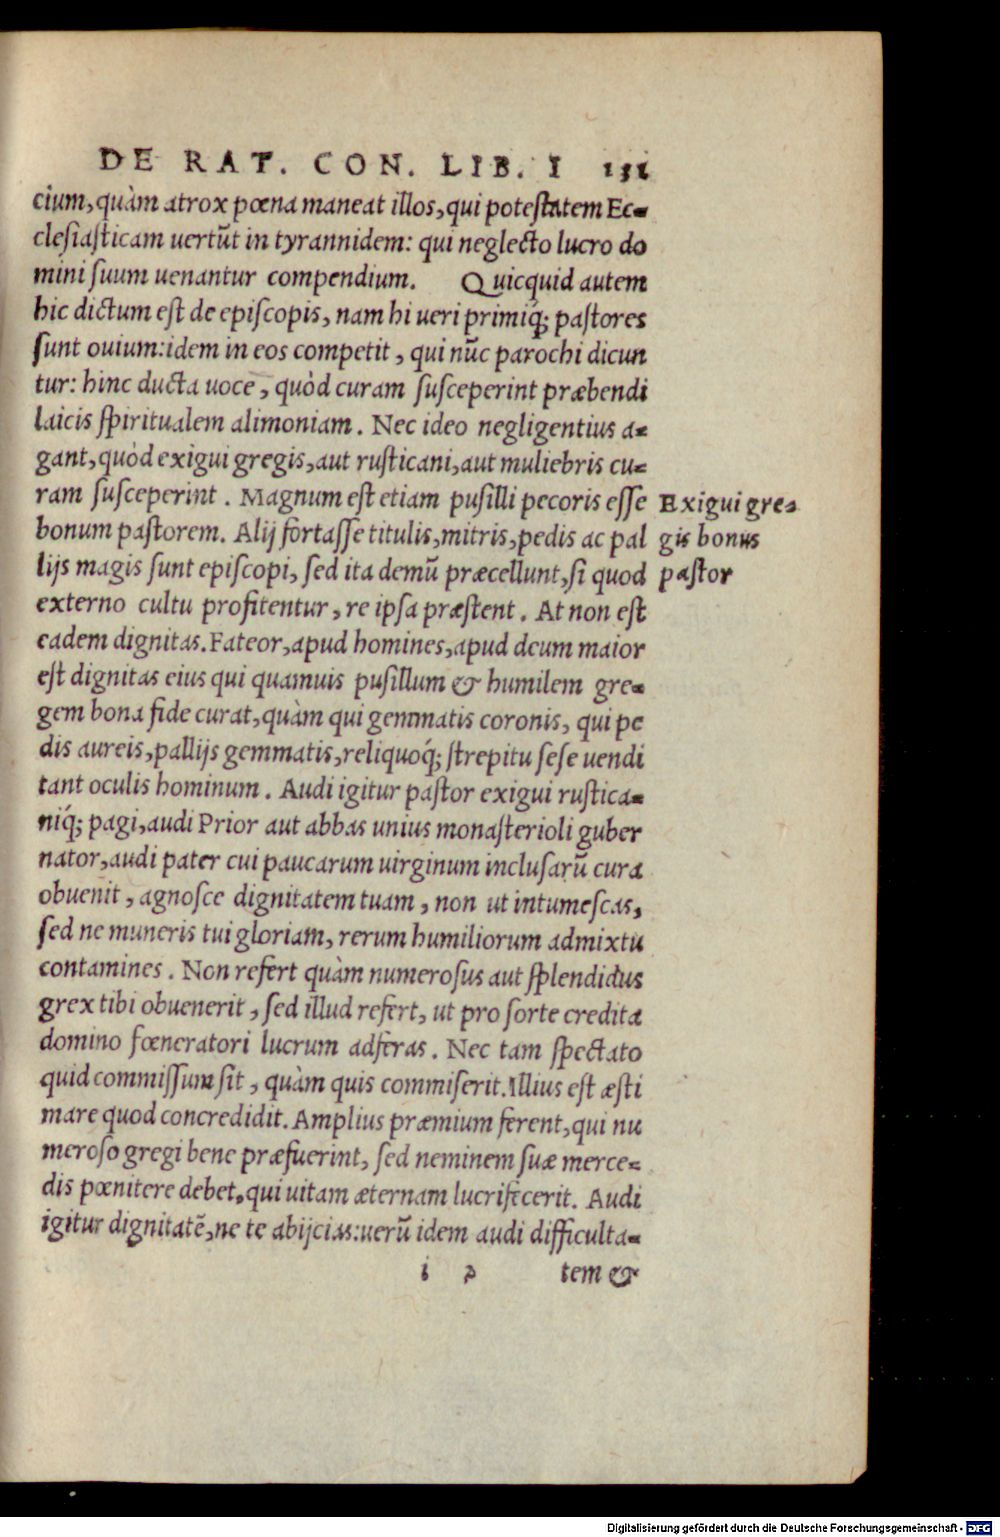 DE RAT. CON. LIB. I 131
cium, quàm atrox pœna maneat illos, qui potestatem Ec-
clesiasticam uertũt in tyrannidem: qui neglecto lucro do
mini suum uenantur compendium. Quicquid autem
hic dictum est de episcopis, nam hi ueri primiq́; pastores
sunt ouium: idem in eos competit, qui nũc parochi dicun
tur: hinc ducta uoce, quòd curam susceperint præbendi
laicis spiritualem alimoniam. Nec ideo negligentius a-
gant, quòd exigui gregis, aut rusticani, aut muliebris cu-
ram susceperint. Magnum est etiam pusilli pecoris esse
bonum pastorem. Alij fortasse titulis, mitris, pedis ac pal
lijs magis sunt episcopi, sed ita demũ præcellunt, si quod
externo cultu profitentur, re ipsa præstent. At non est
eadem dignitas. Fateor, apud homines, apud deum maior
est dignitas eius qui quamuis pusillum & humilem gre-
gem bona fide curat, quàm qui gemmatis coronis, qui pe
dis aureis, pallijs gemmatis, reliquoq́; strepitu sese uendi
tant oculis hominum. Audi igitur pastor exigui rustica-
niq́; pagi, audi Prior aut abbas unius monasterioli guber
nator, audi pater cui paucarum uirginum inclusarũ cura
obuenit, agnosce dignitatem tuam, non ut intumescas,
sed ne muneris tui gloriam, rerum humiliorum admixtu
contamines. Non refert quàm numerosus aut splendidus
grex tibi obuenerit, sed illud refert, ut pro sorte credita
domino fœneratori lucrum adferas. Nec tam spectato
quid commissum sit, quàm quis commiserit. Illius est æsti
mare quod concredidit. Amplius præmium ferent, qui nu
meroso gregi bene præfuerint, sed neminem suæ merce-
dis pœnitere debet, qui uitam æternam lucrifecerit. Audi
igitur dignitatẽ, ne te abijcias: uerũ idem audi difficulta-
i 2 tem &
Exigui gre-
gis bonus
pastor
Digitalisierung gefördert durch die Deutsche Forschungsgemeinschaft - DFG